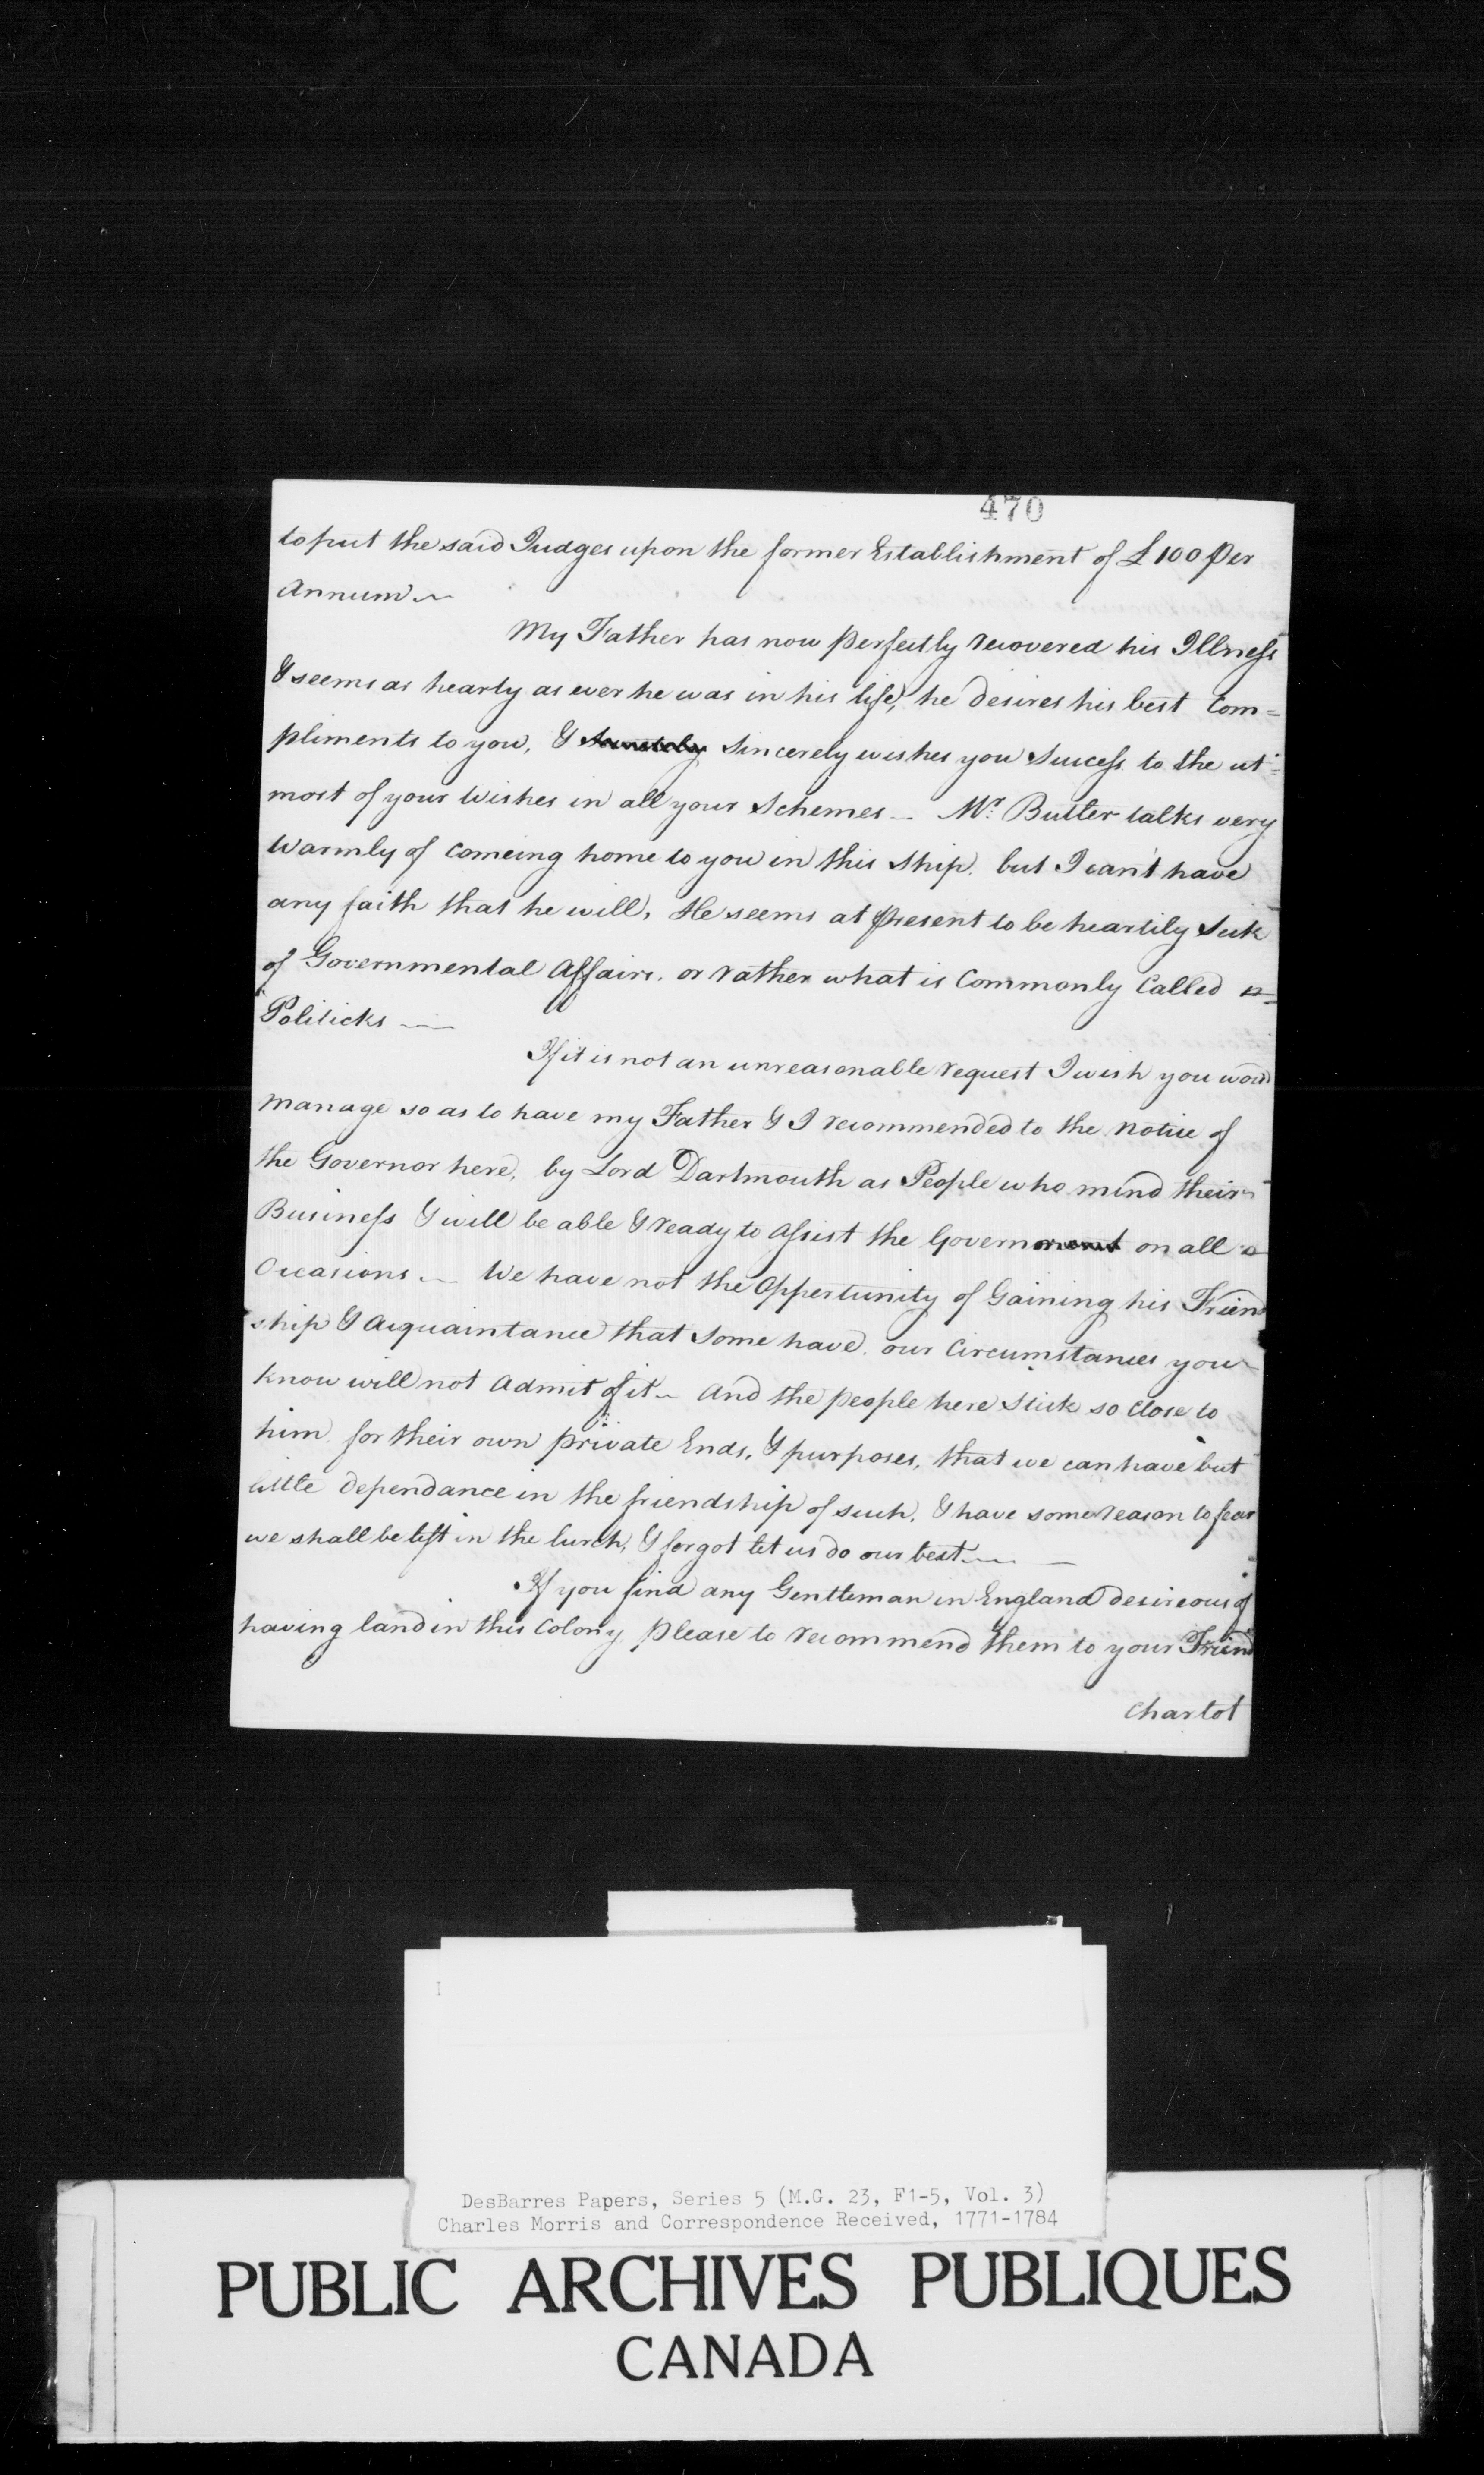 470
to put the said Judges upon the former Establishment of £100 Per
Annum
My Father has now perfectly recovered his Illness
& seems as hearty as ever he was in his life, he desires his best Com=
pliments to you, & sincerely wishes you Success to the ut=
most of your Wishes in all your Schemes - Mr. Butler talks very
Warmly of comeing home to you in this Ship. but I can't have
any faith that he will, He seems at present to be heartily Sick
of Governmental Affairs. or rather what is Commonly Called
Politicks
If it is not an unreasonable request I wish you woud
manage so as to have my Father & I recommended to the notice of
the Governor here, by Lord Dartmouth as People who mind their
Business & will be able & ready to Assist the Government on all
Occasions. - We have not the Oppertunity of Gaining his Friend
ship & Acquaintance that Some have. our Circumstances you
know will not Admit of it - And the people here Stick so Close to
him for their own private Ends, & purposes, that we can have but
little dependance in the friendship of such. & have some reason to fear
we shall be left in the lurch, & forgot let us do our best
If you find any Gentleman in England desireous of
having land in this Colony please to recommend them to your Friend
Charlot
DesBarres Papers, Series 5 (M.G. 23, F1-5, Vol. 3)
Charles Morris and Correspondence Received, 1771-1784
PUBLIC ARCHIVES PUBLIQUES
CANADA